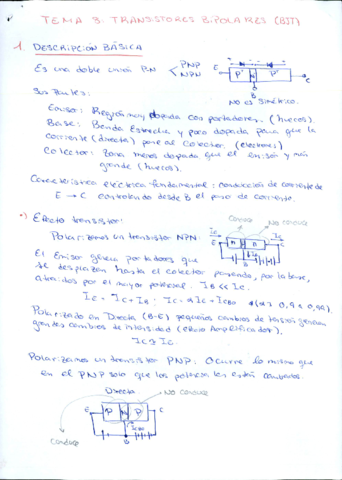 TEMA 3: TRANSISTORES BIPOLARES (BJT)
1. DESCRIPCIÓN BÁSICA
Es una doble unión PN < PNP
NPN
E P+ N P C
B
No es simétrico.
Sus partes:
Emisor: Región muy dopada con portadores. (huecos).
Base: Banda Estrecha y poco dopada para que la
corriente (directa) pase al colector. (electrones)
Colector: Zona menos dopada que el emisor y más
grande (huecos).
Característica eléctrica fundamental: conducción de corriente de
E → C controlando desde B el paso de corriente.
*) Efecto transistor:
Conduce
No conduce
Polarizamos un transistor NPN:
El Emisor genera portadores que
se desplazan hasta el colector pasando, por la base,
atraídos por el mayor potencial. IB << IC.
Polarizado en Directa (B-E) pequeños cambios de tensión generan
grandes cambios de intensidad (efecto Amplificador).
Polarizamos un transistor PNP: Ocurre lo mismo que
en el PNP solo que los potenciales están cambiados.
Directa
No conduce
E P N P C
B
Conduce